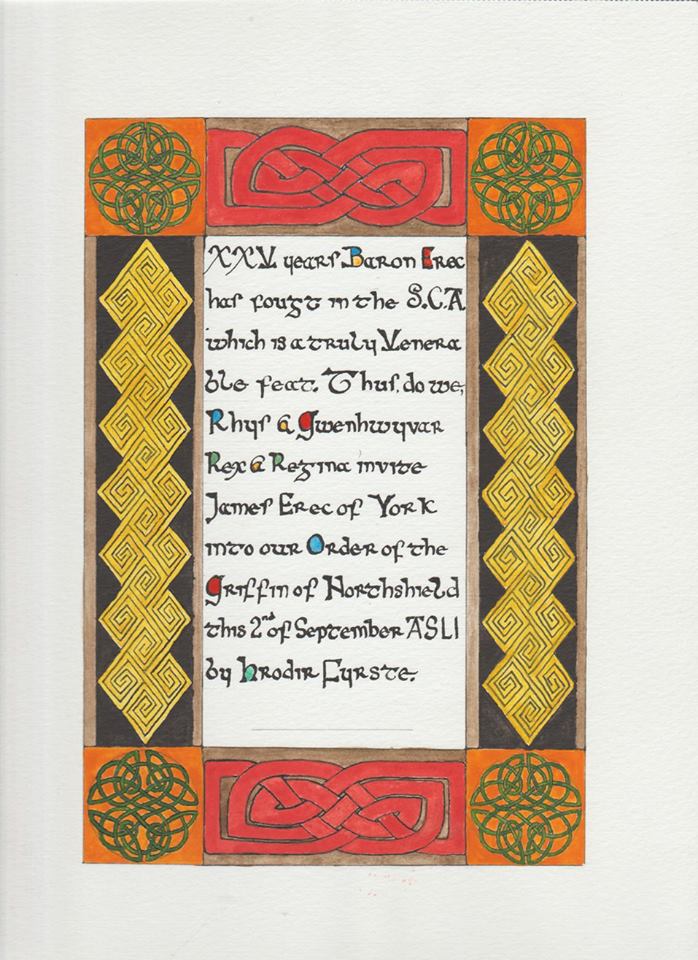 XXV years Baron Erec
has fougt in the S.C.A
which is a truly Venera
ble feat. Thus, do we,
Rhys & Gwenhwyvar
Rex & Regina invite
James Erec of York
into our Order of the
Griffin of Northshield
this 2nd of September ASLI
by Hrodir Fyrste.